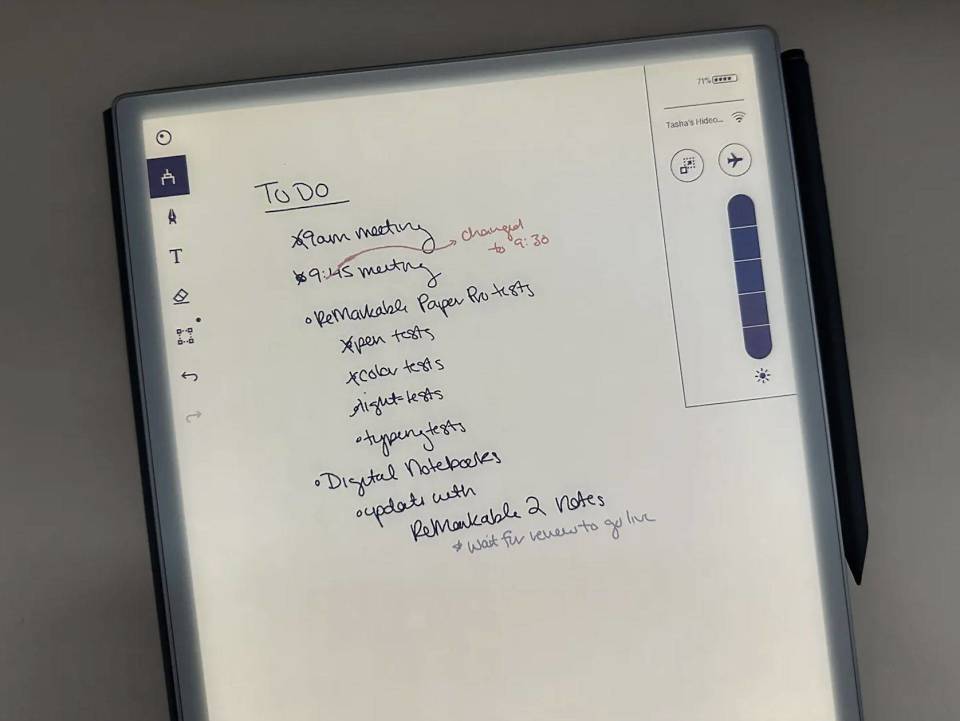 71%
Tasha's Hideo...
T
TO DO
x9am meeting
changed
to 9:30
x9:45 meeting
• ReMarkable Paper Pro tests
xpen tests
xcolor tests
light tests
• typing tests
• Digital Notebooks
• update with
ReMarkable 2 notes
* wait for review to go live